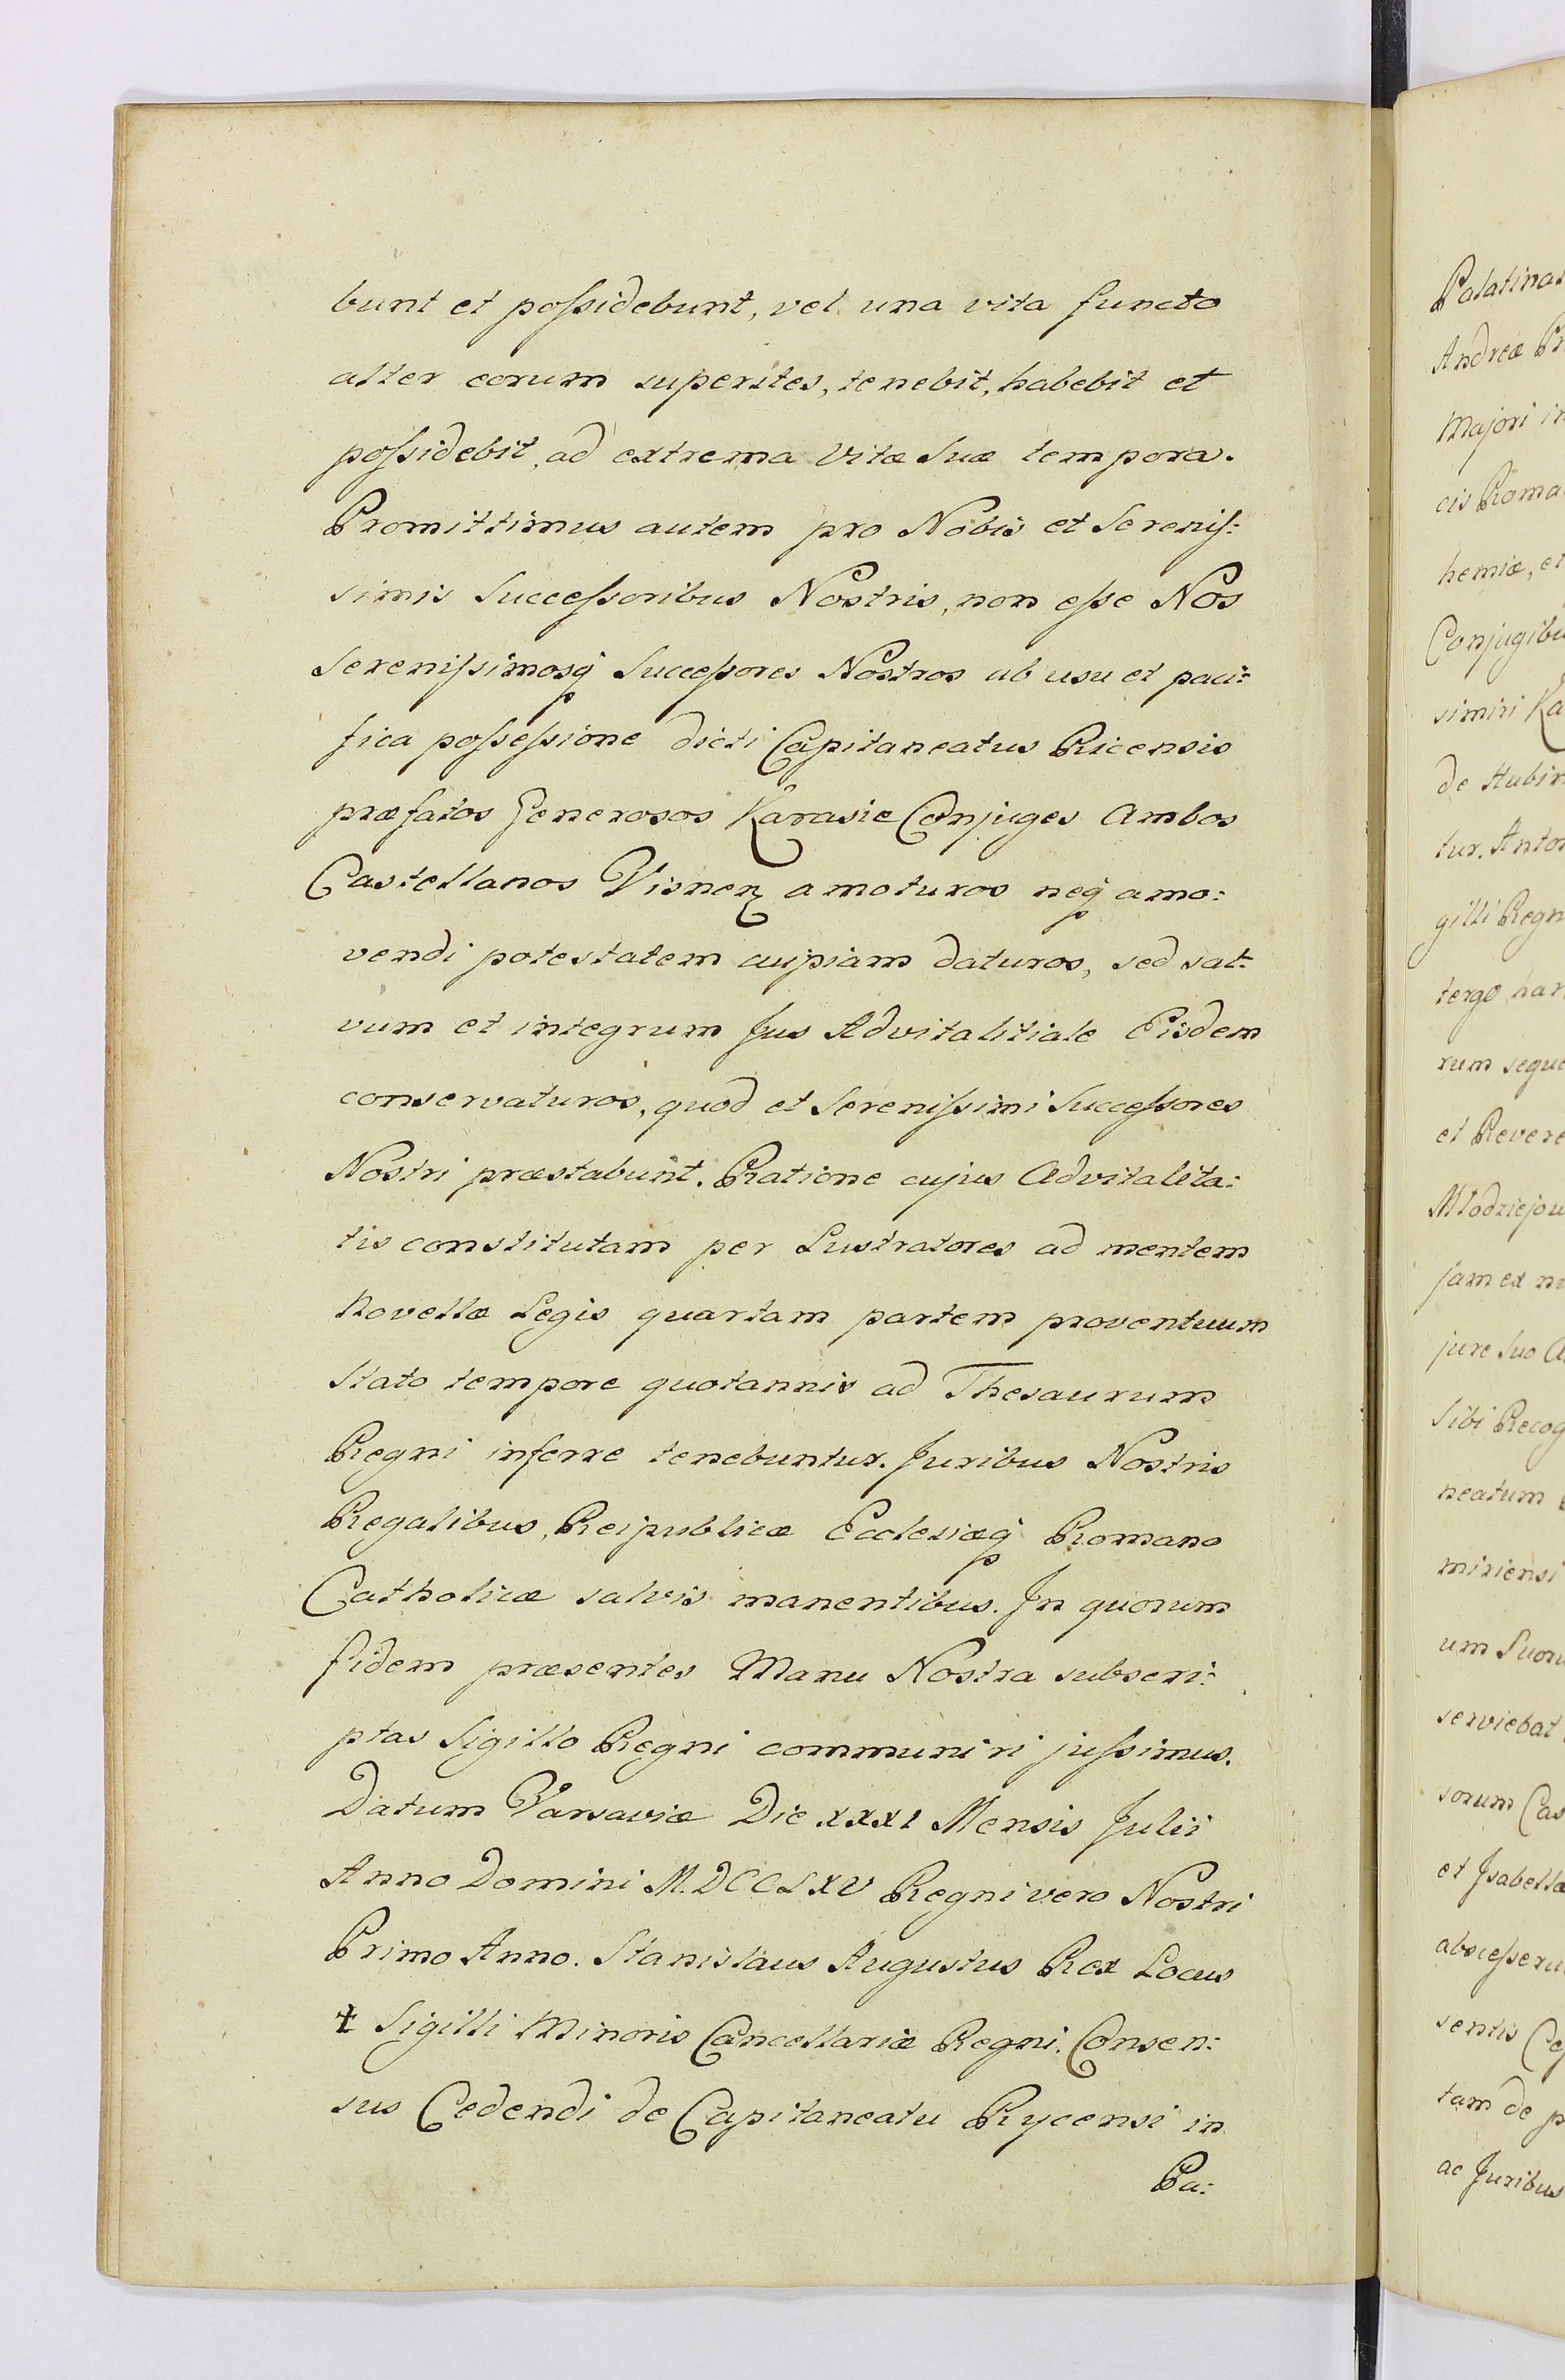 bunt et possidebunt, vel una vita functo
alter eorum superstes, tenebit, habebit et
possidebit, ad extrema Vitæ Suæ tempora.
Promittimus autem pro Nobis et Sereniss:
simis Successoribus Nostris, non esse Nos
Serenissimosq̃ Successores Nostros ab usu et paci:
fica possessione dicti Capitaneatus Ricensis
præfatos Generosos Karasie Conjuges Ambos
Castellanos Visneñ amoturos neq̃ amo:
vendi potestatem cuipiam daturos, sed sal:
vum et integrum Jus Advitalitiale Eisdem
conservaturos, quod et Serenissimi Successores
Nostri præstabunt. Ratione cujus Advitalita:
tis constitutam per Lustratores ad mentem
Novellæ Legis quartam partem proventuum
Stato tempore quotannis ad Thesaurum
Regni inferre tenebuntur. Juribus Nostris
Regalibus, Reipublicæ Ecclesiæq̃ Romano
Catholicæ salvis manentibus. In quorum
fidem præsentes Manu Nostra subscri:
ptas Sigillo Regni communiri jussimus.
Datum Varsaviæ Die XXXI Mensis Julii
Anno Domini M.DCCLXV Regni vero Nostri
Primo Anno. Stanislaus Augustus Rex Locus
✝ Sigilli Minoris Cancellariæ Regni. Consen:
sus Cedendi de Capitaneatu Rycensi in
Pa:
Palatinat
Andreæ Pr
Majori in
cis Roma
hemiæ, et
Conjugibu
simiri Ka
de Hubin
tur. Anton
gilli Regn
tergo har
rum seque
et Revere
Młodziejow
jam ex nu
jure Suo A
Sibi Recog
neatum
miriensi
um Suoru
serviebat
sorum Cas
et Isabellæ
abscesseru
sentis Ces
tam de p
ac Juribus